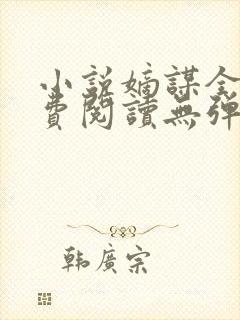 小説嫡謀全
費閱讀無彈
韩廣宗